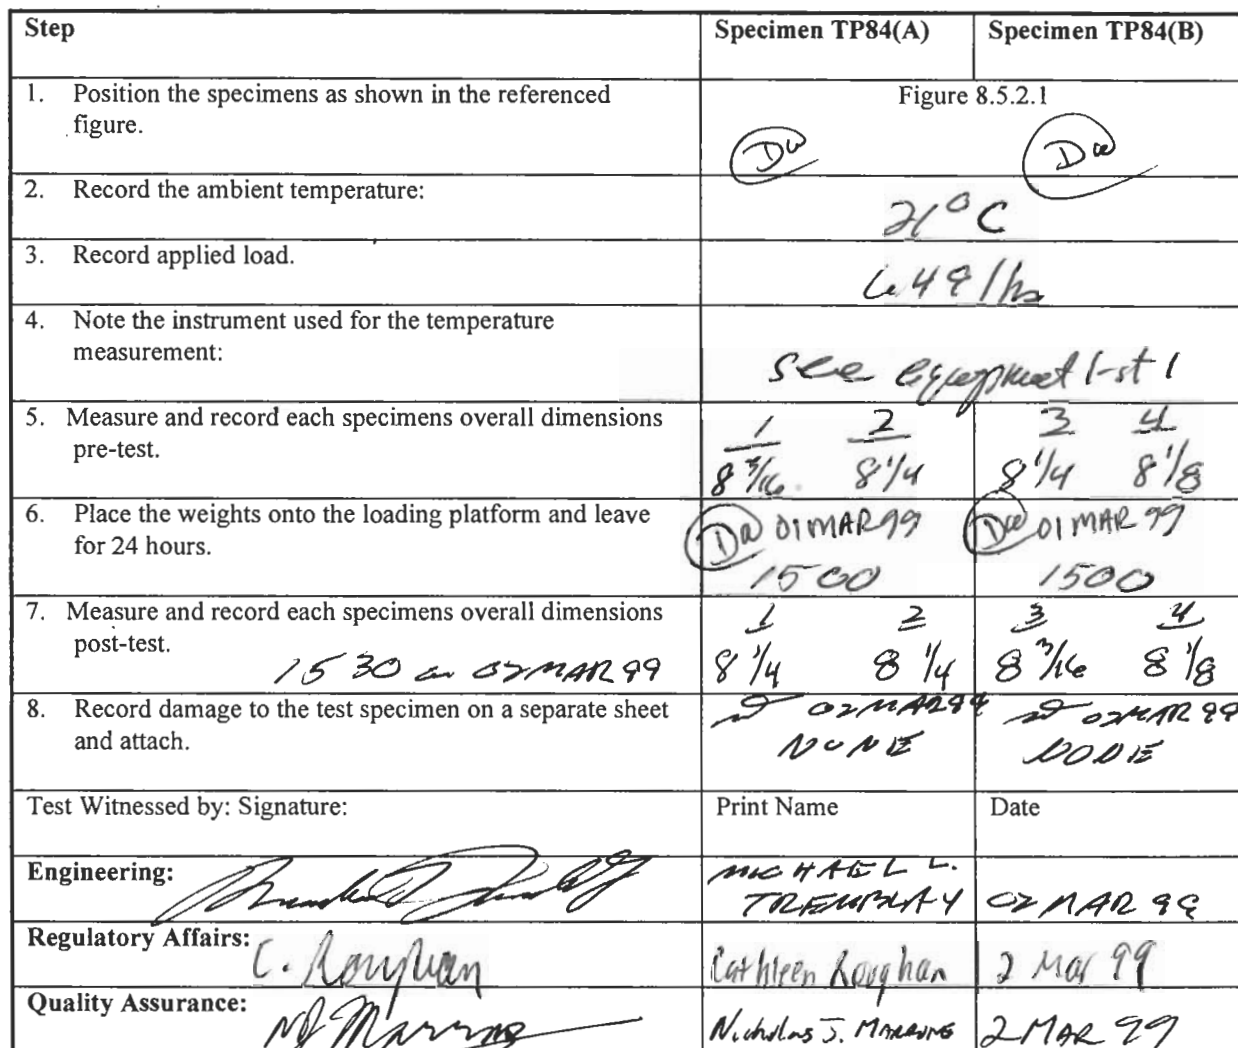 Step Specimen TP84(A) Specimen TP84(B)
1. Position the specimens as shown in the referenced Figure 8.5.2.1
figure.
DW DW
2. Record the ambient temperature:
21°C
3. Record applied load.
lbs
4. Note the instrument used for the temperature
measurement:
see equipment list 1
5. Measure and record each specimens overall dimensions 1 2 3 4
pre-test.
8 3/16 8 1/4 8 1/4 8 1/8
6. Place the weights onto the loading platform and leave
for 24 hours.
DW 01 MAR 99 DW 01 MAR 99
1500 1500
7. Measure and record each specimens overall dimensions 1 2 3 4
post-test.
1530 on 02 MAR 99 8 1/4 8 1/4 8 3/16 8 1/8
8. Record damage to the test specimen on a separate sheet 02 MAR 99 02 MAR 99
and attach. NONE NONE
Test Witnessed by: Signature: Print Name Date
Engineering: MICHAEL L.
TREMBLAY 02 MAR 99
Regulatory Affairs: C. Roughan Cathleen Roughan 2 Mar 99
Quality Assurance: Nicholas J. MARRONE 2 MAR 99